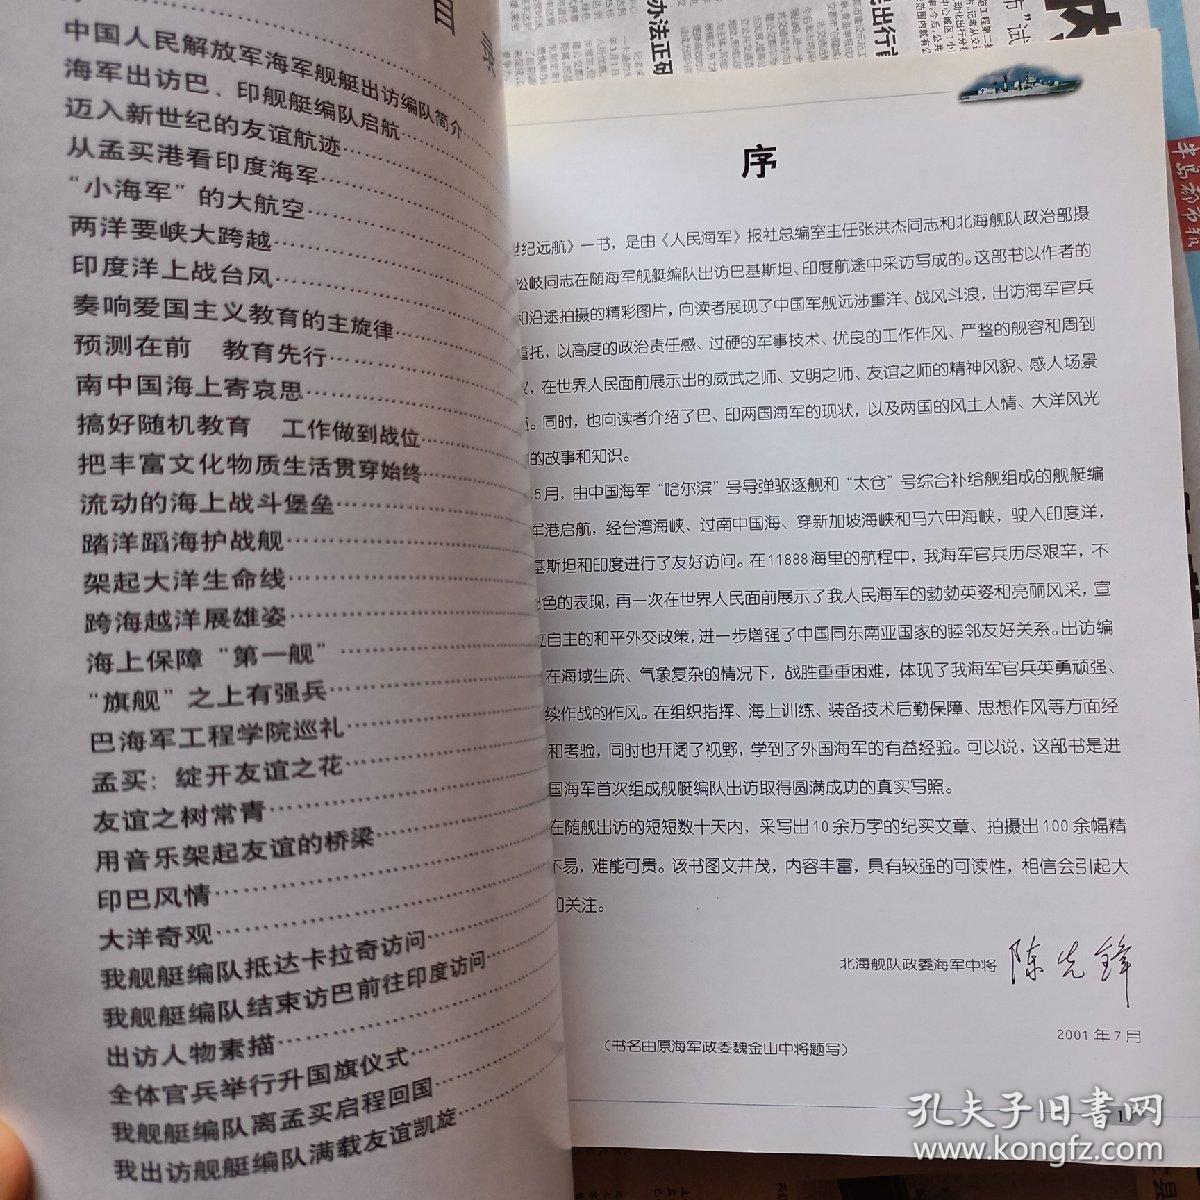 目
录
序
中国人民解放军海军舰艇出访编队简介
海军出访巴、印舰艇编队启航
迈入新世纪的友谊航迹
从孟买港看印度海军
“小海军”的大航空
两洋要峡大跨越
印度洋上战台风
奏响爱国主义教育的主旋律
预测在前 教育先行
南中国海上寄哀思
搞好随机教育 工作做到战位
把丰富文化物质生活贯穿始终
流动的海上战斗堡垒
踏洋蹈海护战舰
架起大洋生命线
跨海越洋展雄姿
海上保障“第一舰”
“旗舰”之上有强兵
巴海军工程学院巡礼
孟买：绽开友谊之花
友谊之树常青
用音乐架起友谊的桥梁
印巴风情
大洋奇观
我舰艇编队抵达卡拉奇访问
我舰艇编队结束访巴前往印度访问
出访人物素描
全体官兵举行升国旗仪式
我舰艇编队离孟买启程回国
我出访舰艇编队满载友谊凯旋
序
世纪远航》一书，是由《人民海军》报社总编室主任张洪杰同志和北海舰队政治部摄
松岐同志在随海军舰艇编队出访巴基斯坦、印度航途中采访写成的。这部书以作者的
和沿途拍摄的精彩图片，向读者展现了中国军舰远涉重洋、战风斗浪，出访海军官兵
重托，以高度的政治责任感、过硬的军事技术、优良的工作作风、严整的舰容和周到
，在世界人民面前展示出的威武之师、文明之师、友谊之师的精神风貌、感人场景
。同时，也向读者介绍了巴、印两国海军的现状，以及两国的风土人情、大洋风光
的故事和知识。
5月，由中国海军“哈尔滨”号导弹驱逐舰和“太仓”号综合补给舰组成的舰艇编
军港启航，经台湾海峡、过南中国海、穿新加坡海峡和马六甲海峡，驶入印度洋，
基斯坦和印度进行了友好访问。在11888海里的航程中，我海军官兵历尽艰辛，不
出色的表现，再一次在世界人民面前展示了我人民海军的勃勃英姿和亮丽风采，宣
立自主的和平外交政策，进一步增强了中国同东南亚国家的睦邻友好关系。出访编
在海域生疏、气象复杂的情况下，战胜重重困难，体现了我海军官兵英勇顽强、
续作战的作风。在组织指挥、海上训练、装备技术后勤保障、思想作风等方面经
和考验，同时也开阔了视野，学到了外国海军的有益经验。可以说，这部书是进
国海军首次组成舰艇编队出访取得圆满成功的真实写照。
在随舰出访的短短数十天内，采写出10余万字的纪实文章、拍摄出100余幅精
不易，难能可贵。该书图文并茂，内容丰富，具有较强的可读性，相信会引起大
和关注。
北海舰队政委海军中将 陈先锋
2001年7月
（书名由原海军政委魏金山中将题写）
1
半岛都市报
办法正
孔夫子旧书网
www.kongfz.com